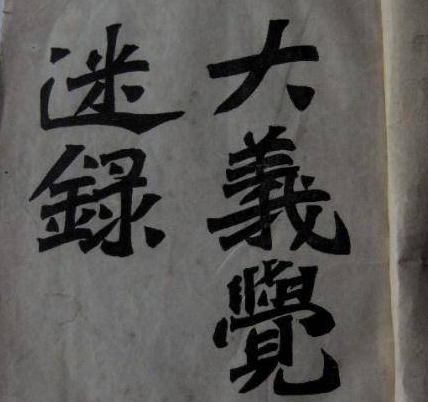 大義覺
迷録